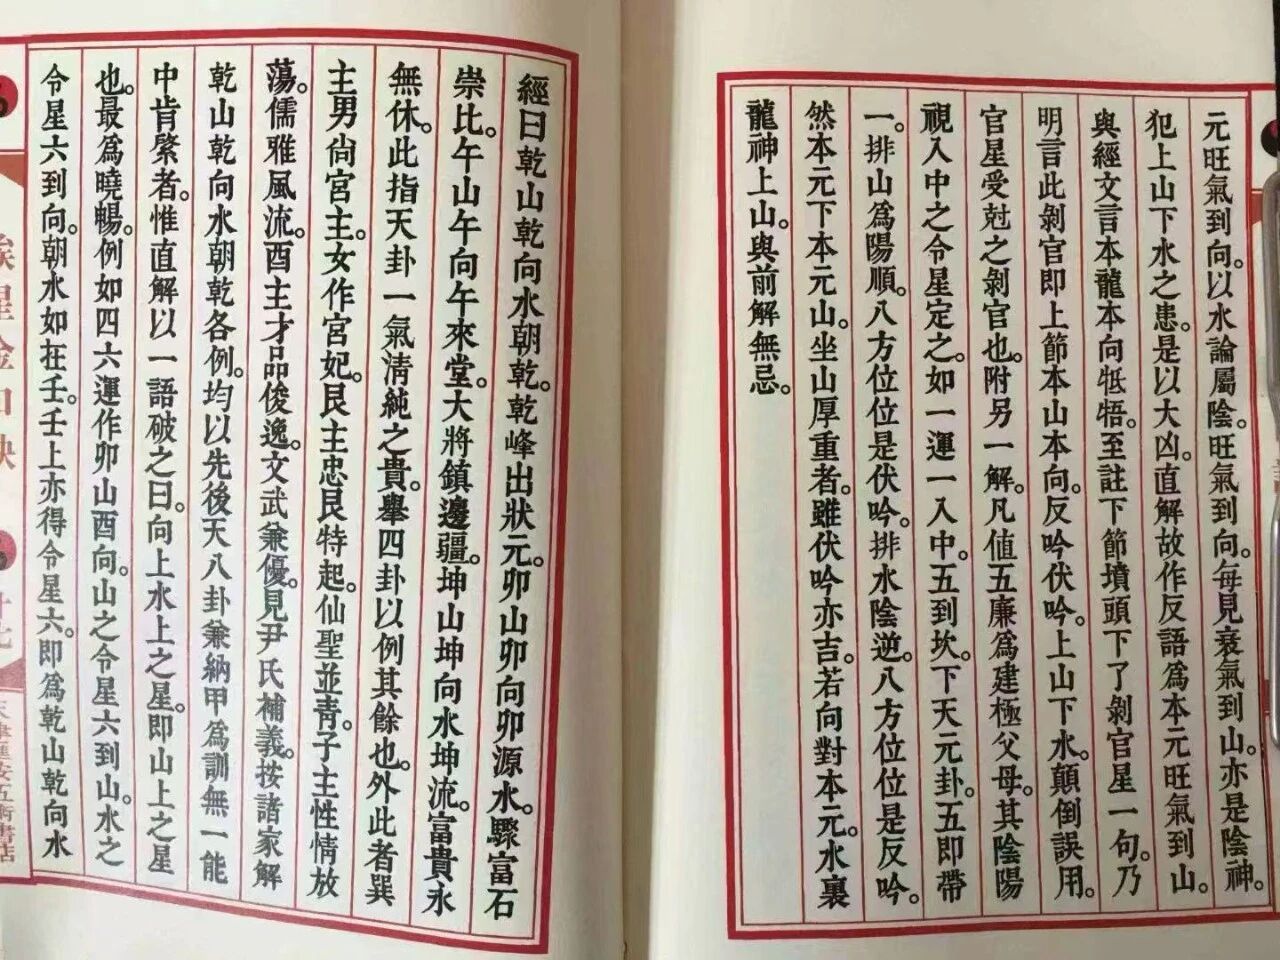 元旺氣到向。以水論屬陰。旺氣到向。每見衰氣到山。亦是陰神。
犯上山下水之患。是以大凶。直解故作反語為本元旺氣到山。
與經文言本龍本向牴牾。至註下節墳頭下了剝官星一句。乃
明言此剝官即上節本山本向。反吟伏吟。上山下水。顛倒誤用。
官星受尅之剝官也。附另一解。凡值五廉為建極父母。其陰陽
視入中之令星定之。如一運一入中。五到坎。下天元卦。五即帶
一。排山為陽順。八方位位是伏吟。排水陰逆。八方位位是反吟。
然本元下本元山。坐山厚重者。雖伏吟亦吉。若向對本元。水裏
龍神上山。與前解無忌。
經曰乾山乾向水朝乾。乾峰出狀元。卯山卯向卯源水。驟富石
崇比。午山午向午來堂。大將鎮邊疆。坤山坤向水坤流。富貴永
無休。此指天卦一氣清純之貴。舉四卦以例其餘也。外此者巽
主男尚宮主。女作宮妃。艮主忠艮特起。仙聖並青。子主性情放
蕩。儒雅風流。酉主才品俊逸。文武兼優。見尹氏補義。按諸家解
乾山乾向水朝乾各例。均以先後天八卦兼納甲為訓無一能
中肯綮者。惟直解以一語破之曰。向上水上之星。即山上之星
也。最為曉暢。例如四六運作卯山酉向。山之令星六到山。水之
令星六到向。朝水如在壬。壬上亦得令星六。即為乾山乾向水
天津運安五術書店